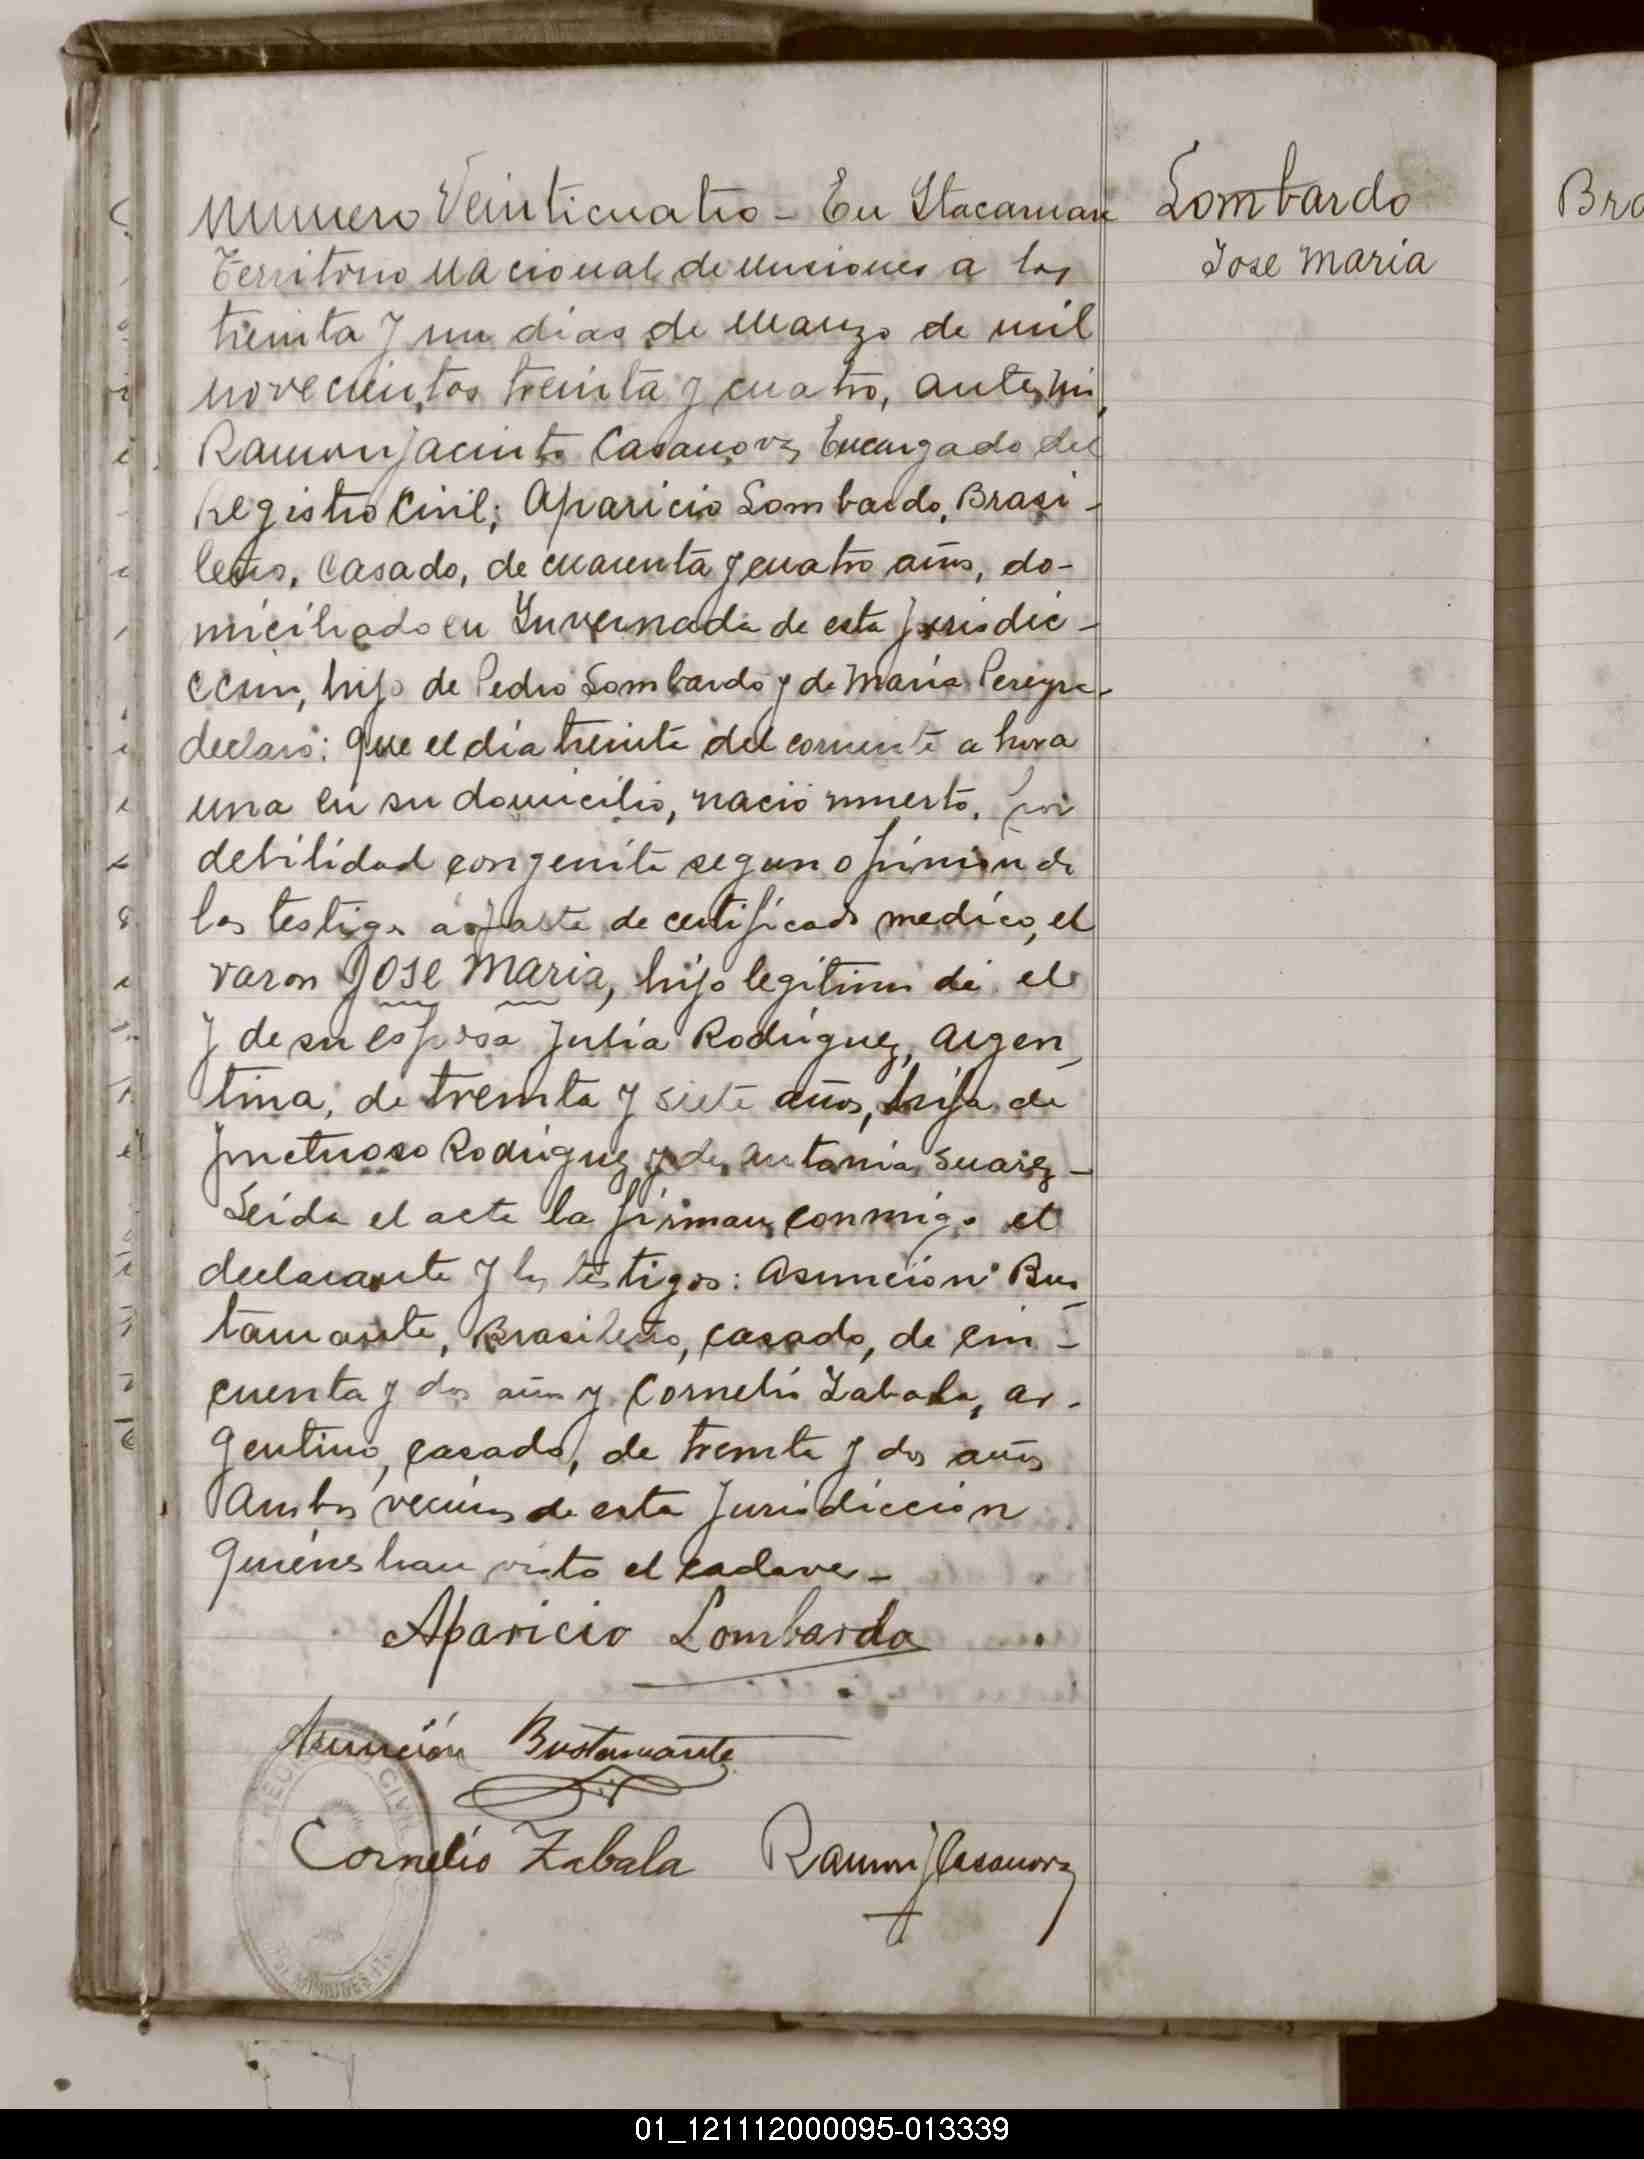 Numero Veinticuatro - En Itacaruare
Territorio Nacional de Misiones a los
treinta y un dias de Marzo de mil
novecientos treinta y cuatro, ante mi,
Ramon Jacinto Casanova Encargado del
Registro Civil; Aparicio Lombardo, Brasi-
leño, Casado, de cuarenta y cuatro años, do-
miciliado en Invernada de esta jurisdic-
ccion, hijo de Pedro Lombardo y de Maria Pereyra-
declaró: Que el día treinta del corriente a hora
una en su domicilio, nació muerto, por
debilidad congenita segun opinión de
los testigos a falta de certificado medico, el
varon JOSE MARIA, hijo legitimo de el
y de su esposa Julia Rodriguez, argen
tina, de treinta y siete años, hija de
Fructuoso Rodriguez y de Antonia Suarez -
Leida el acta la firman conmigo el
declarante y los testigos: Asunción Bus
tamante, Brasileño, casado, de cin-
cuenta y dos años y Cornelio Zabala, ar-
gentino, casado, de treinta y dos años
Ambos vecinos de esta Jurisdiccion
Quienes han visto el cadaver -
Aparicio Lombardo
Asunción Bustamante
Cornelio Zabala Ramon J Casanova
REGISTRO CIVIL
MISIONES
Lombardo
Jose Maria
Bra
01_121112000095-013339